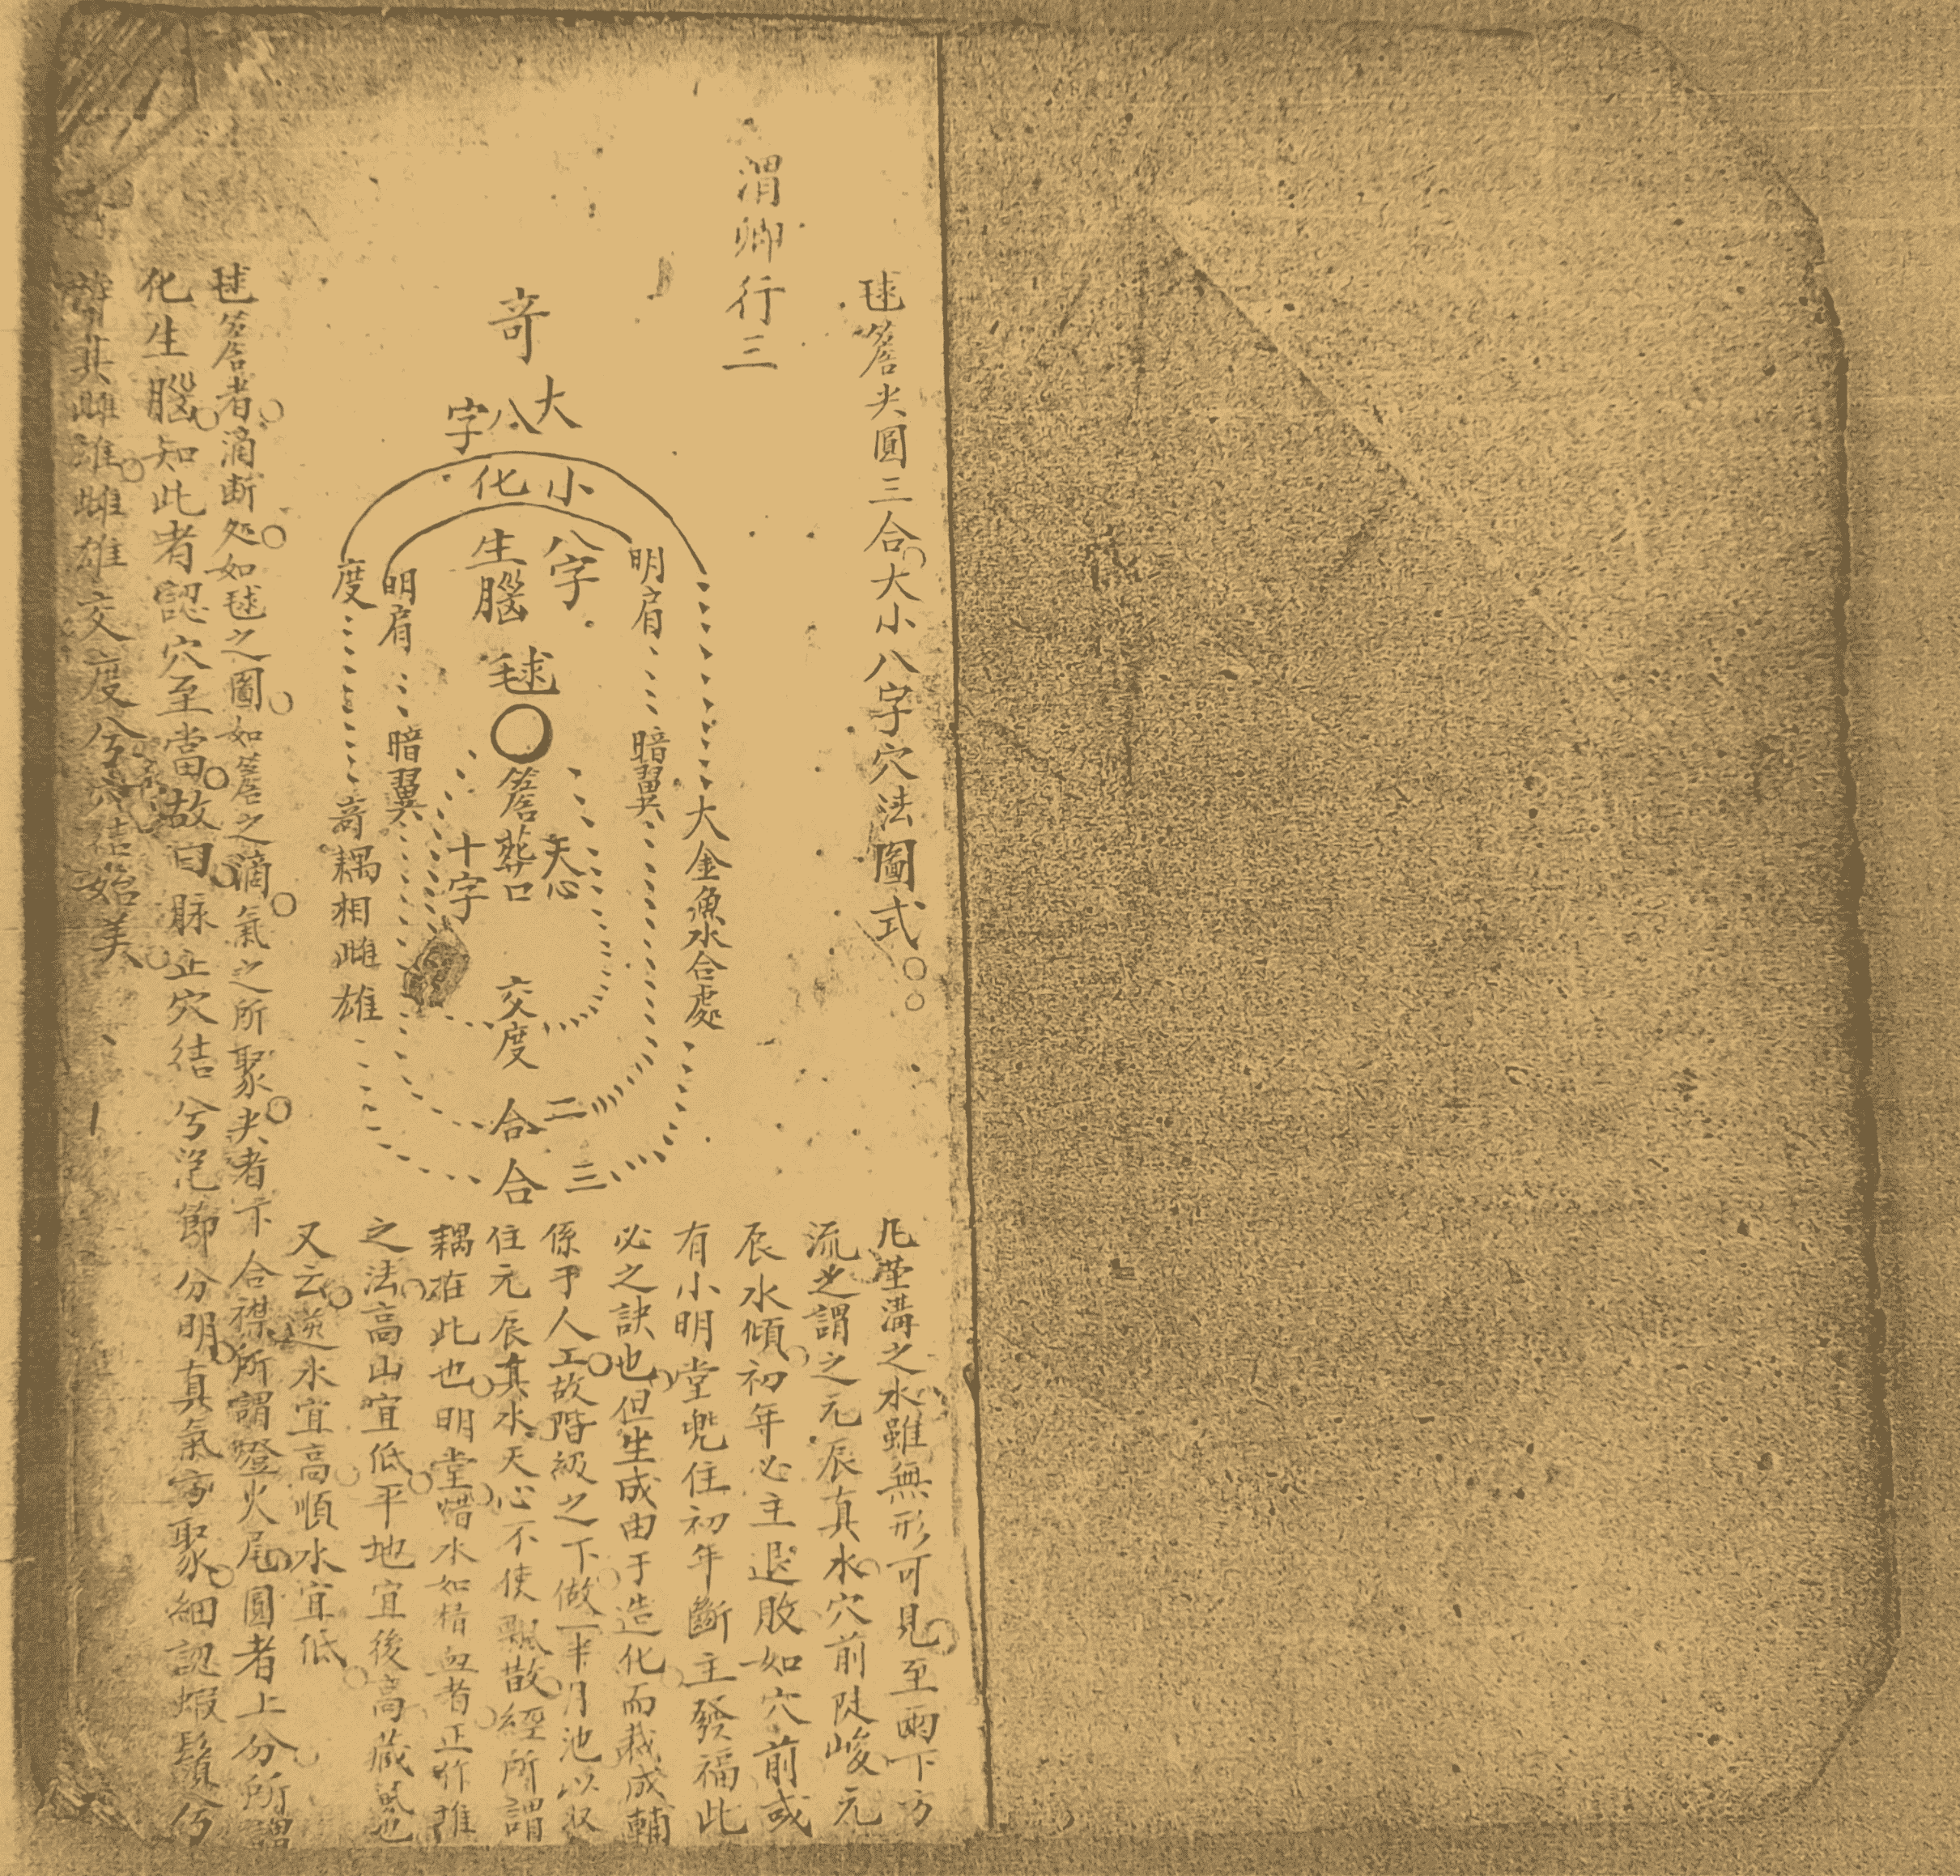 毬簷夫圓三合大小八字穴法圖式
渭卿行三
奇
大八字
小八字
化生腦
明肩
明肩
度
毬
簷
暗翼
暗翼
天心
葬口
十字
大金魚水合處
奇耦相雌雄
交度
二合
三合
凡茔溝之水雖無形可見至雨下方
流之謂之元辰真水穴前陡峻元
辰水傾初年必主退敗如穴前或
有小明堂兜住初年斷主發福此
必之訣也但生成由于造化而裁成輔
係于人工故階級之下做一半月池以収
住元辰真水天心不使飄散經所謂
耦在此也明堂惜水如精血者正祚雅
之法高山宜低平地宜後高藏氣也
又云逆水宜高順水宜低
毬簷者滴断処如毬之圖如簷之滴氣之所聚夫者下合襟所謂燈火尾圓者上分所謂
化生腦知此者認穴至當故曰脉止穴结兮范節分明真氣攸聚細認蝦鬚兮
其雌雄雌雄交度兮穴结始美